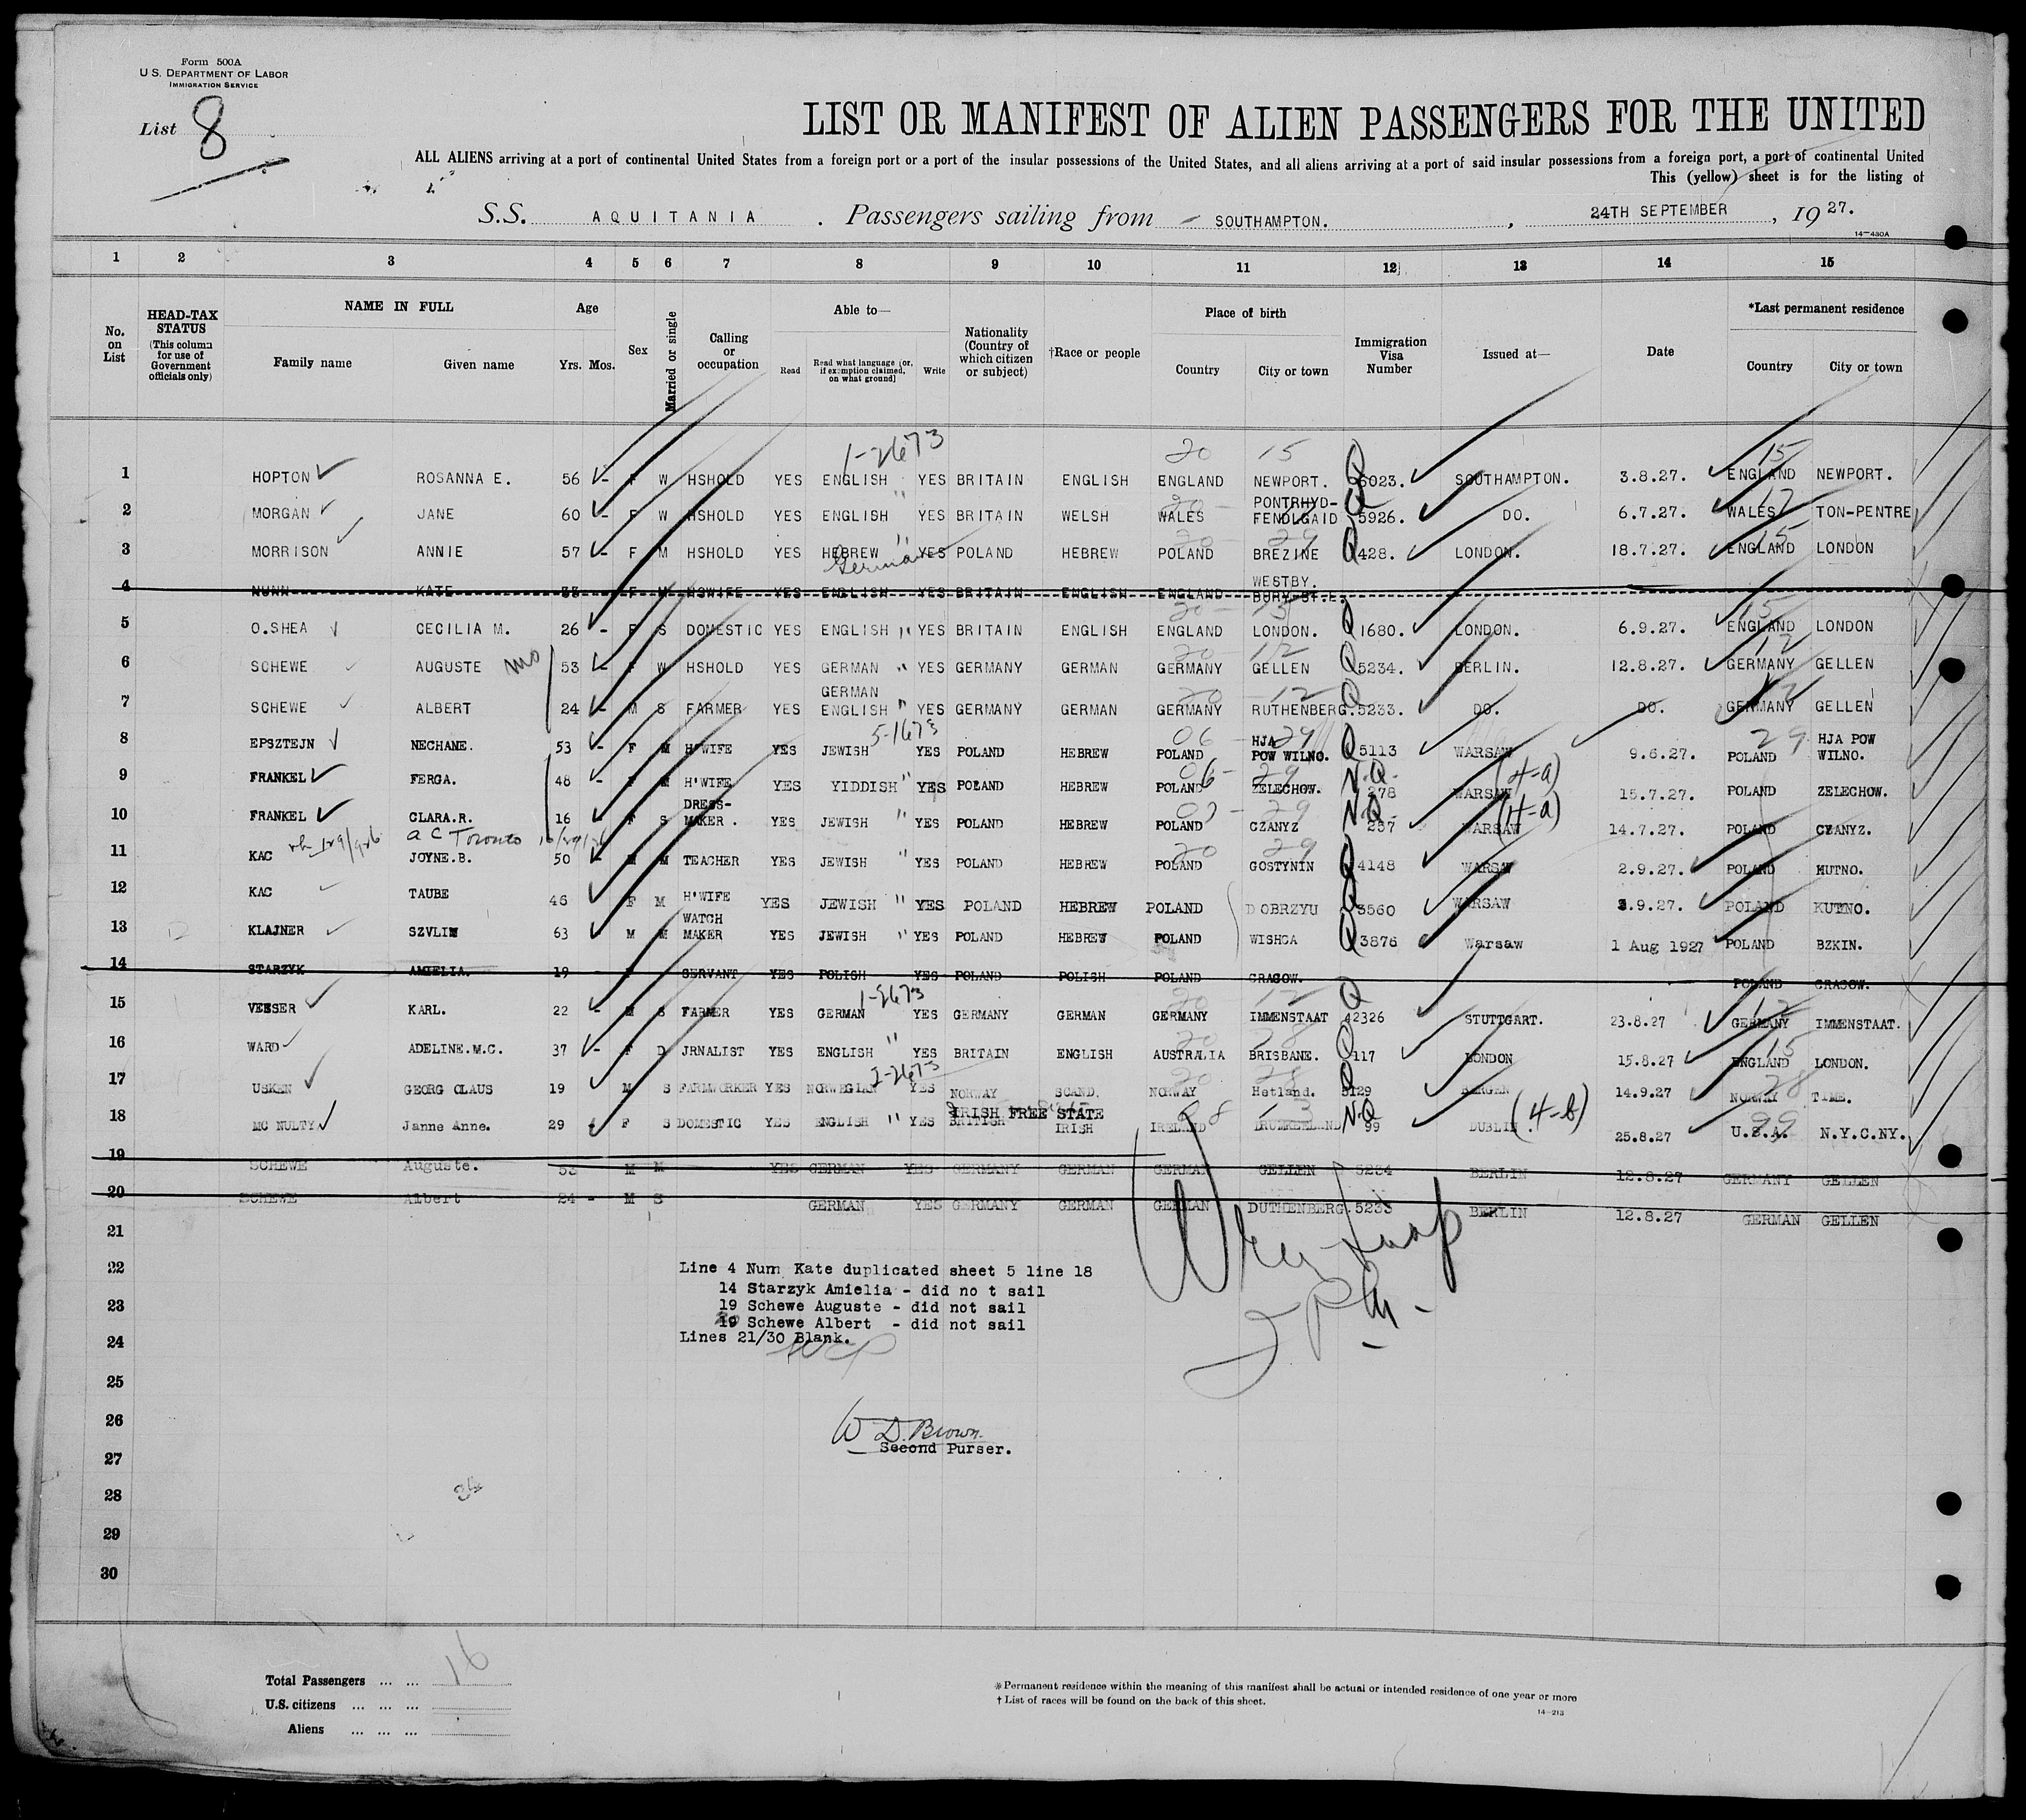 Form 500A
U.S. DEPARTMENT OF LABOR
IMMIGRATION SERVICE
List 8
LIST OR MANIFEST OF ALIEN PASSENGERS FOR THE UNITED
ALL ALIENS arriving at a port of continental United States from a foreign port or a port of the insular possessions of the United States, and all aliens arriving at a port of said insular possessions from a foreign port, a port of continental United
This (yellow) sheet is for the listing of
S.S. AQUITANIA . Passengers sailing from SOUTHAMPTON. , 24TH SEPTEMBER , 19 27.
14—430A
1 2 3 4 5 6 7 8 9 10 11 12 13 14 15
No. on List
HEAD-TAX STATUS (This column for use of Government officials only)
NAME IN FULL Family name Given name
Age Yrs. Mos.
Sex
Married or single
Calling or occupation
Able to— Read Read what language [or, if exemption claimed, on what ground] Write
Nationality (Country of which citizen or subject)
†Race or people
Place of birth Country City or town
Immigration Visa Number
Issued at—
Date
*Last permanent residence Country City or town
1-2673 20 15 15
1 HOPTON ROSANNA E. 56 - F W HSHOLD YES ENGLISH YES BRITAIN ENGLISH ENGLAND NEWPORT. Q 6023. SOUTHAMPTON. 3.8.27. ENGLAND NEWPORT.
2 MORGAN JANE 60 - F W HSHOLD YES ENGLISH " YES BRITAIN WELSH WALES PONTRHYD-FENDLGAID Q 5926. DO. 6.7.27. WALES TON-PENTRE
3 MORRISON ANNIE 57 - F M HSHOLD YES HEBREW German " YES POLAND HEBREW POLAND BREZINE Q 428. LONDON. 18.7.27. ENGLAND LONDON
4 NUNN KATE 33 F M HSWIFE YES ENGLISH YES BRITAIN ENGLISH ENGLAND WESTBY. BURY ST.E.
5 O.SHEA CECILIA M. 26 - F S DOMESTIC YES ENGLISH " YES BRITAIN ENGLISH ENGLAND LONDON. Q 1680. LONDON. 6.9.27. ENGLAND LONDON
6 SCHEWE AUGUSTE mo 53 - F W HSHOLD YES GERMAN " YES GERMANY GERMAN GERMANY GELLEN Q 5234. BERLIN. 12.8.27. GERMANY GELLEN
7 SCHEWE ALBERT 24 - M S FARMER YES GERMAN ENGLISH " YES GERMANY GERMAN GERMANY RUTHENBERG. Q 5233. DO. DO. GERMANY GELLEN
8 EPSZTEJN NECHANE. 53 - F M H'WIFE YES JEWISH 5-1673 YES POLAND HEBREW POLAND HJA POW WILNO. Q 5113 WARSAW 9.6.27. POLAND HJA POW WILNO.
9 FRANKEL FERGA. 48 - F M H'WIFE YES YIDDISH " YES POLAND HEBREW POLAND ZELECHOW. N.Q. 278 WARSAW (4-a) 15.7.27. POLAND ZELECHOW.
10 FRANKEL CLARA.R. 16 F S DRESS-MAKER. YES JEWISH " YES POLAND HEBREW POLAND CZANYZ N.Q. 257 WARSAW (4-a) 14.7.27. POLAND CZANYZ.
a C Toronto
11 KAC JOYNE.B. 50 - M M TEACHER YES JEWISH " YES POLAND HEBREW POLAND GOSTYNIN Q 4148 WARSAW 2.9.27. POLAND KUTNO.
12 KAC TAUBE 46 F M H'WIFE YES JEWISH " YES POLAND HEBREW POLAND DOBRZYU Q 3560 WARSAW .9.27. POLAND KUTNO.
13 KLAJNER SZVLIM 63 M M WATCH MAKER YES JEWISH " YES POLAND HEBREW POLAND WISHGA Q 3876 Warsaw 1 Aug 1927 POLAND BZKIN.
14 STARZYK AMIELIA. 19 SERVANT YES POLISH YES POLAND POLISH POLAND CRACOW. POLAND CRACOW.
1-2673
15 VEESER KARL. 22 - M S FARMER YES GERMAN YES GERMANY GERMAN GERMANY IMMENSTAAT Q 42326 STUTTGART. 23.8.27 GERMANY IMMENSTAAT.
16 WARD ADELINE.M.C. 37 - F D JRNALIST YES ENGLISH " YES BRITAIN ENGLISH AUSTRALIA BRISBANE. Q 117 LONDON 15.8.27 ENGLAND LONDON.
2-2673
17 USKEN GEORG OLAUS 19 M S FARMWORKER YES NORWEGIAN YES NORWAY SCAND. NORWAY Hetland. Q 3129 BERGEN 14.9.27 NORWAY TIME.
18 MC NULTY Janne Anne. 29 F S DOMESTIC YES ENGLISH " YES IRISH FREE STATE BRITISH IRISH IRELAND N.Q 99 DUBLIN (4-b) 25.8.27 U.S.A. N.Y.C.NY.
19 SCHEWE Auguste. 53 M M YES GERMAN YES GERMANY GERMAN GERMAN GELLEN 5234 BERLIN 12.8.27 GERMANY GELLEN
20 SCHEWE Albert 24 - M S GERMAN YES GERMANY GERMAN GERMAN DUTHENBERG. 5233 BERLIN 12.8.27 GERMAN GELLEN
21
22 Line 4 Num Kate duplicated sheet 5 line 18
14 Starzyk Amielia - did no t sail
23 19 Schewe Auguste - did not sail
Schewe Albert - did not sail
24 Lines 21/30 Blank.
25
26 W D. Brown.
27 Second Purser.
28
29
30
Total Passengers ... ... 16
U.S. citizens ... ... ...
Aliens ... ... ...
*Permanent residence within the meaning of this manifest shall be actual or intended residence of one year or more
†List of races will be found on the back of this sheet.
14—213